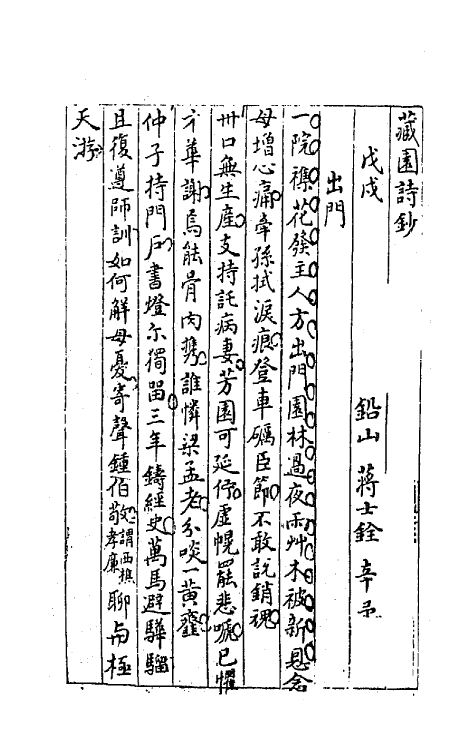 藏園詩鈔
鉛山 蔣士銓 辛予
戊戌
出門
一院襍花發主人方出門園林過夜雨艸木被新恩念
母增心痛牽孫拭淚痕登車礪臣節不敢說銷魂
卅口無生產支持託病妻芳園可延佇虛幌罷悲嗁已懼
才華謝焉能骨肉攜誰憐梁孟老分啖一黃齏
仲子持門戶書燈尒獨留三年鑄經史萬馬避驊騮
且復遵師訓如何解母憂寄聲鍾伯敬謂西樵孝廉聊與極
天游